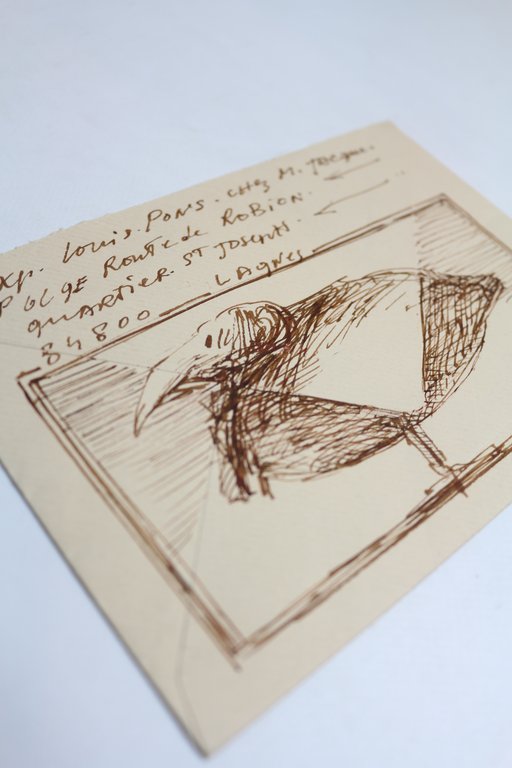 Exp. Louis. PONS. chez M. Jacque.
POLGE Route de RoBioN.
quARTIER. ST JOSEPH.
84800 LAGNES